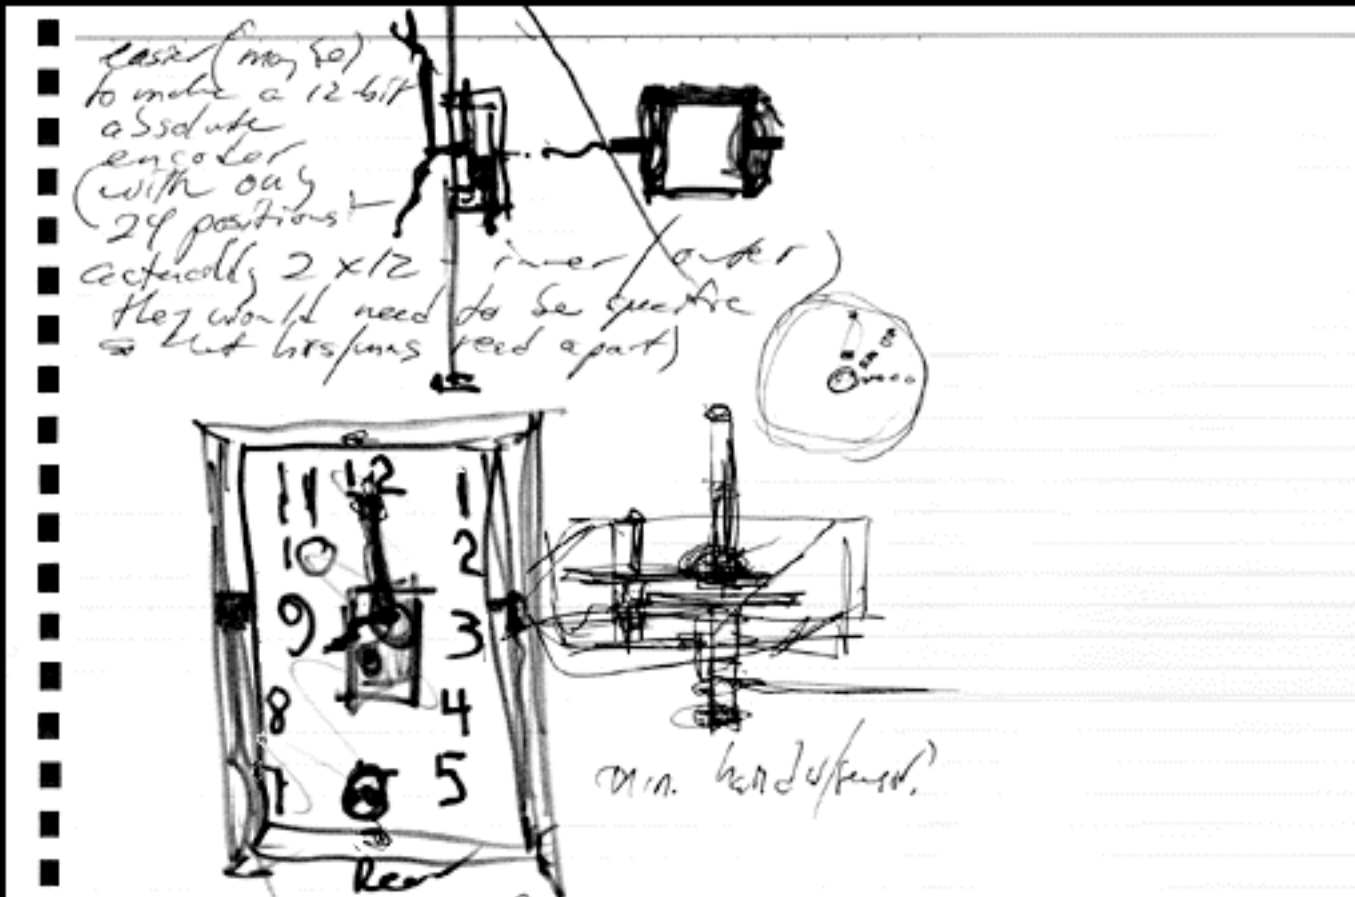 easier (may be)
to make a 12-bit
absolute
encoder
(with only
24 positions
actually 2 x 12 - inner/outer)
they would need to be specific
so that hrs/mins read apart)
11 12 1
10 2
9 3
8 4
7 5
min. hand w/
Rear